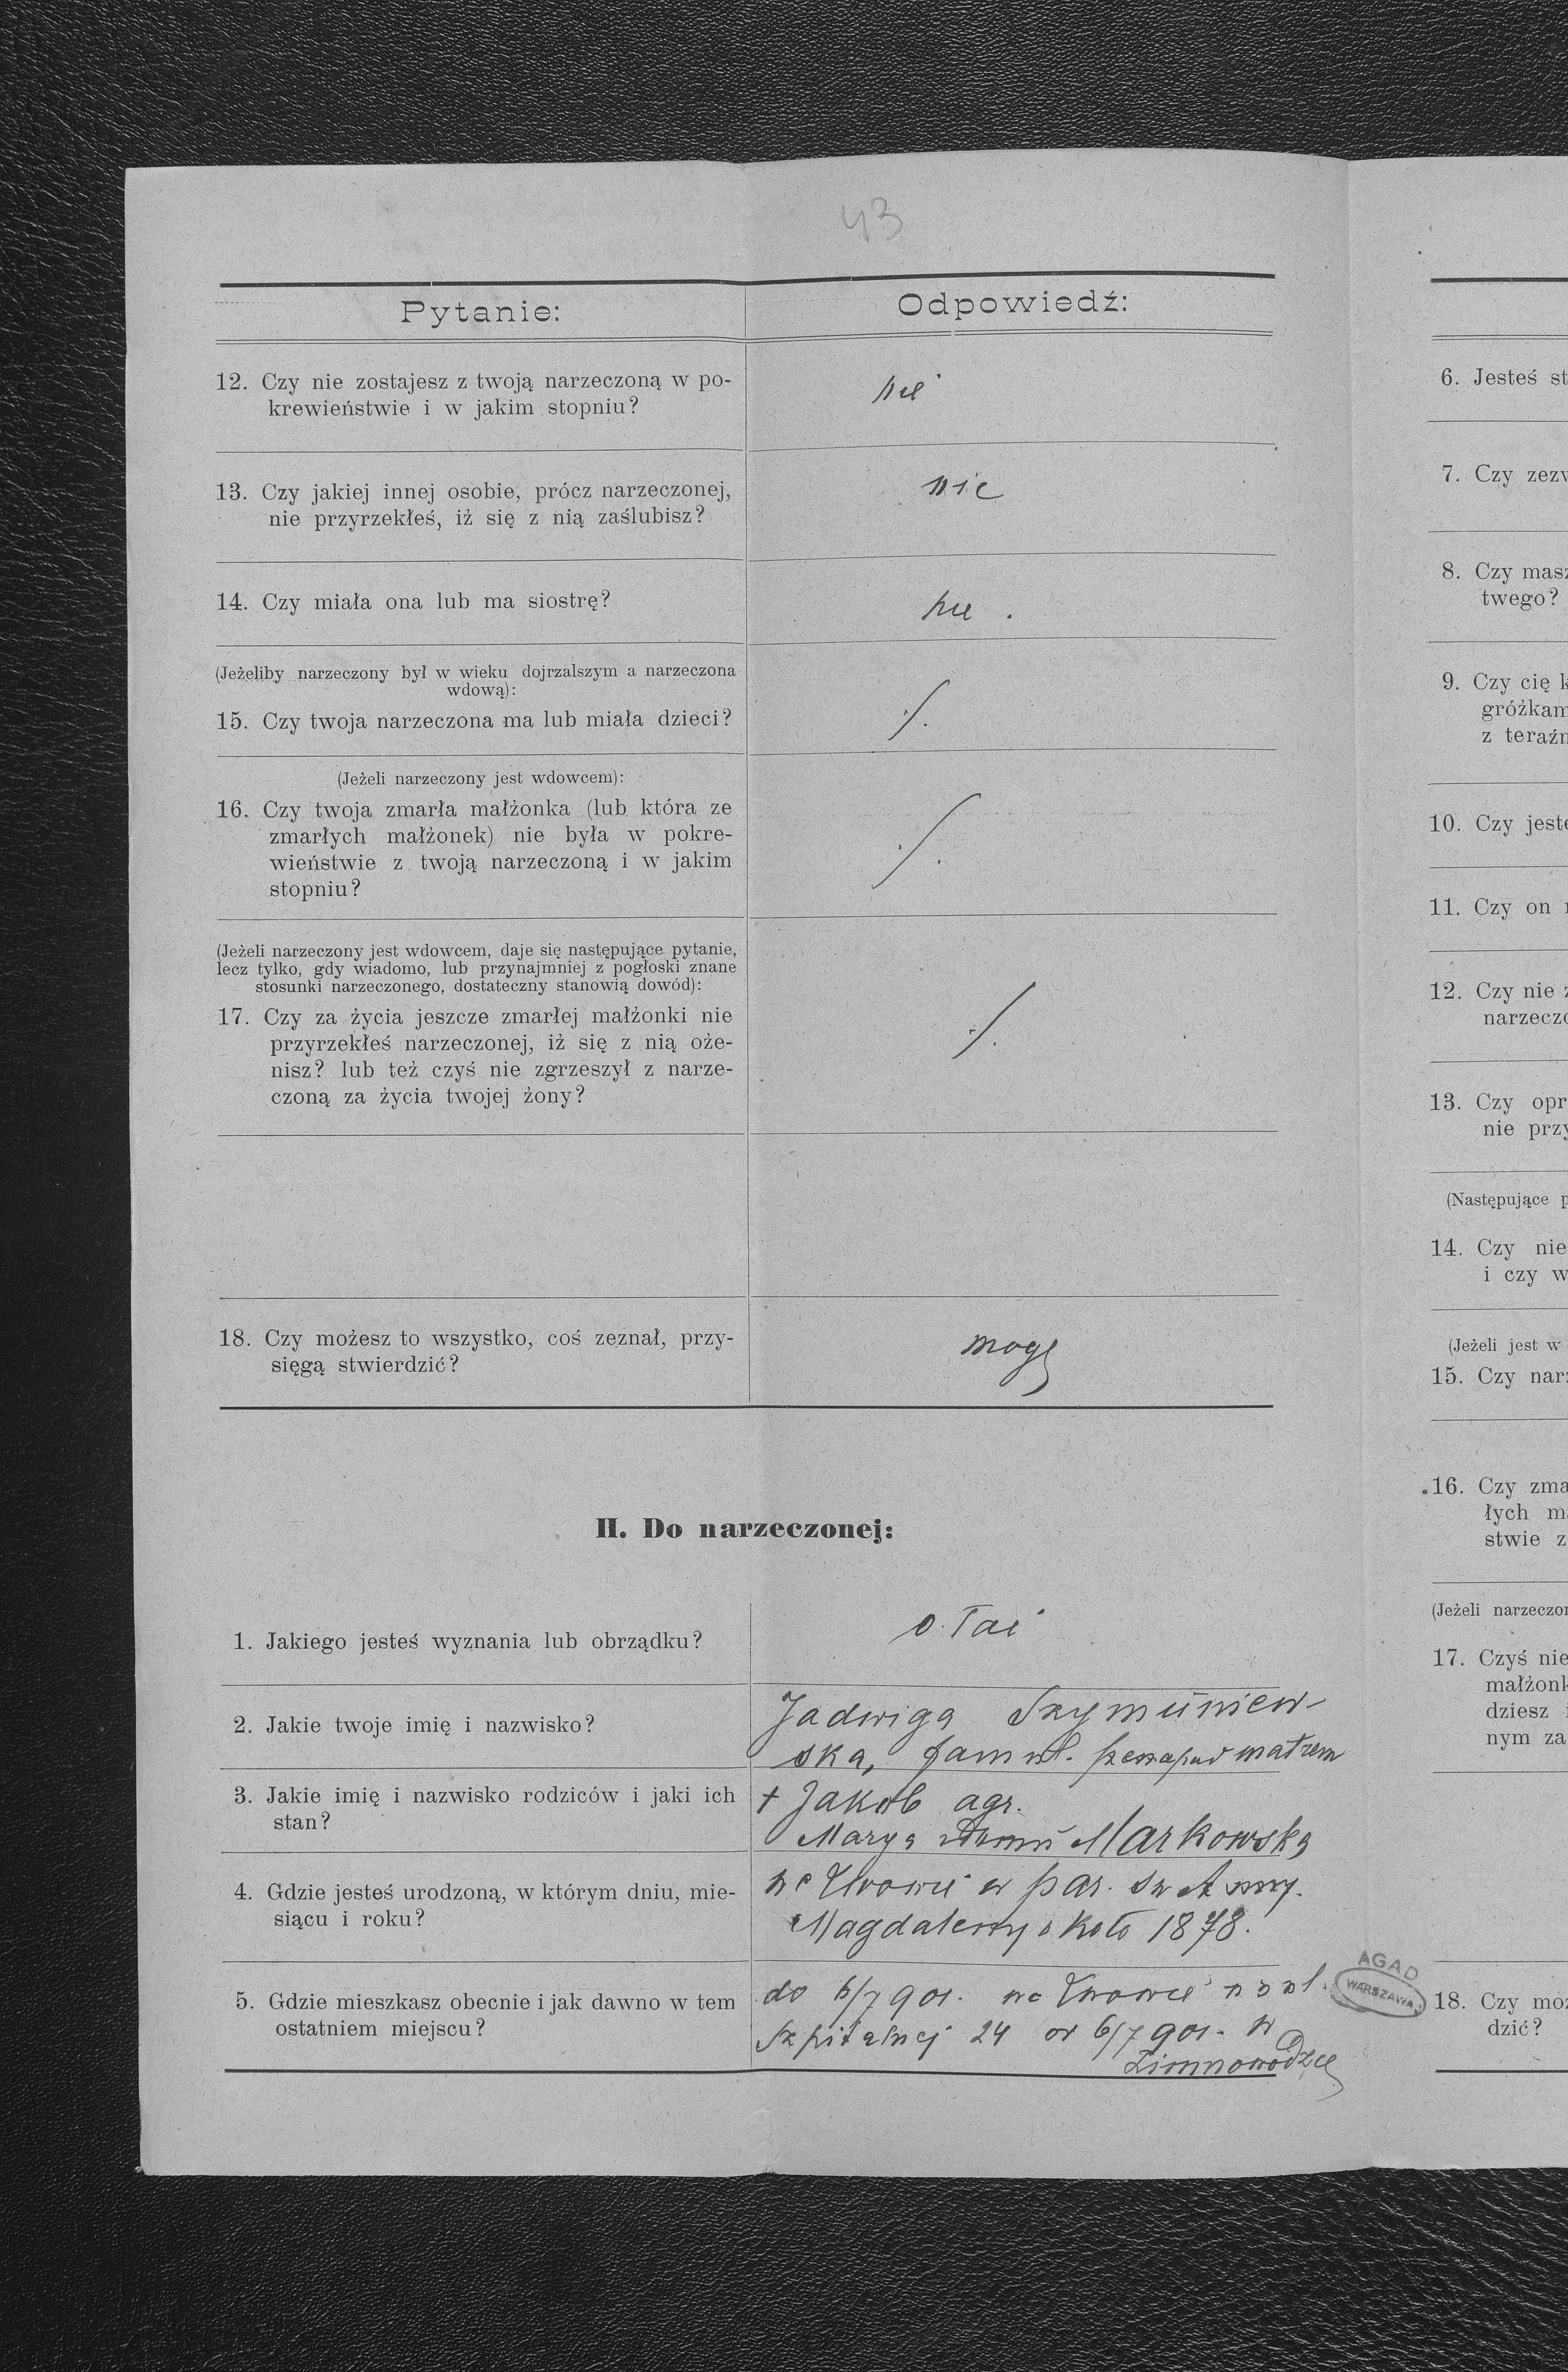 43
Pytanie:
Odpowiedź:
12. Czy nie zostajesz z twoją narzeczoną w po-
krewieństwie i w jakim stopniu?
nie
13. Czy jakiej innej osobie, prócz narzeczonej,
nie przyrzekłeś, iż się z nią zaślubisz?
nie
14. Czy miała ona lub ma siostrę?
nie.
(Jeżeliby narzeczony był w wieku dojrzalszym a narzeczona
wdową):
15. Czy twoja narzeczona ma lub miała dzieci?
./.
(Jeżeli narzeczony jest wdowcem):
16. Czy twoja zmarła małżonka (lub która ze
zmarłych małżonek) nie była w pokre-
wieństwie z twoją narzeczoną i w jakim
stopniu?
./.
(Jeżeli narzeczony jest wdowcem, daje się następujące pytanie,
lecz tylko, gdy wiadomo, lub przynajmniej z pogłoski znane
stosunki narzeczonego, dostateczny stanowią dowód):
17. Czy za życia jeszcze zmarłej małżonki nie
przyrzekłeś narzeczonej, iż się z nią oże-
nisz? lub też czyś nie zgrzeszył z narze-
czoną za życia twojej żony?
./.
18. Czy możesz to wszystko, coś zeznał, przy-
sięgą stwierdzić?
mogę
II. Do narzeczonej:
1. Jakiego jesteś wyznania lub obrządku?
o. łać
2. Jakie twoje imię i nazwisko?
Jadwiga Szymuniew-
ska, matrem
3. Jakie imię i nazwisko rodziców i jaki ich
stan?
† Jakób agr.
Marya Markowska
4. Gdzie jesteś urodzoną, w którym dniu, mie-
siącu i roku?
we Lwowie w par. św
Magdaleny około 1878.
5. Gdzie mieszkasz obecnie i jak dawno w tem
ostatniem miejscu?
do 6/7 901. we Lwowie ul.
Szpitalnej 24 od 6/7 901. w
Zimnowodzie
AGAD
WARSZAWA
6. Jesteś st
7. Czy zezw
8. Czy masz
twego?
9. Czy cię k
gróżkam
z teraźn
10. Czy jeste
11. Czy on
12. Czy nie z
narzeczo
13. Czy opr
nie przy
(Następujące p
14. Czy nie
i czy w
(Jeżeli jest w
15. Czy narz
16. Czy zma
łych ma
stwie z
(Jeżeli narzeczon
17. Czyś nie
małżonk
dziesz
nym za
18. Czy moż
dzić?